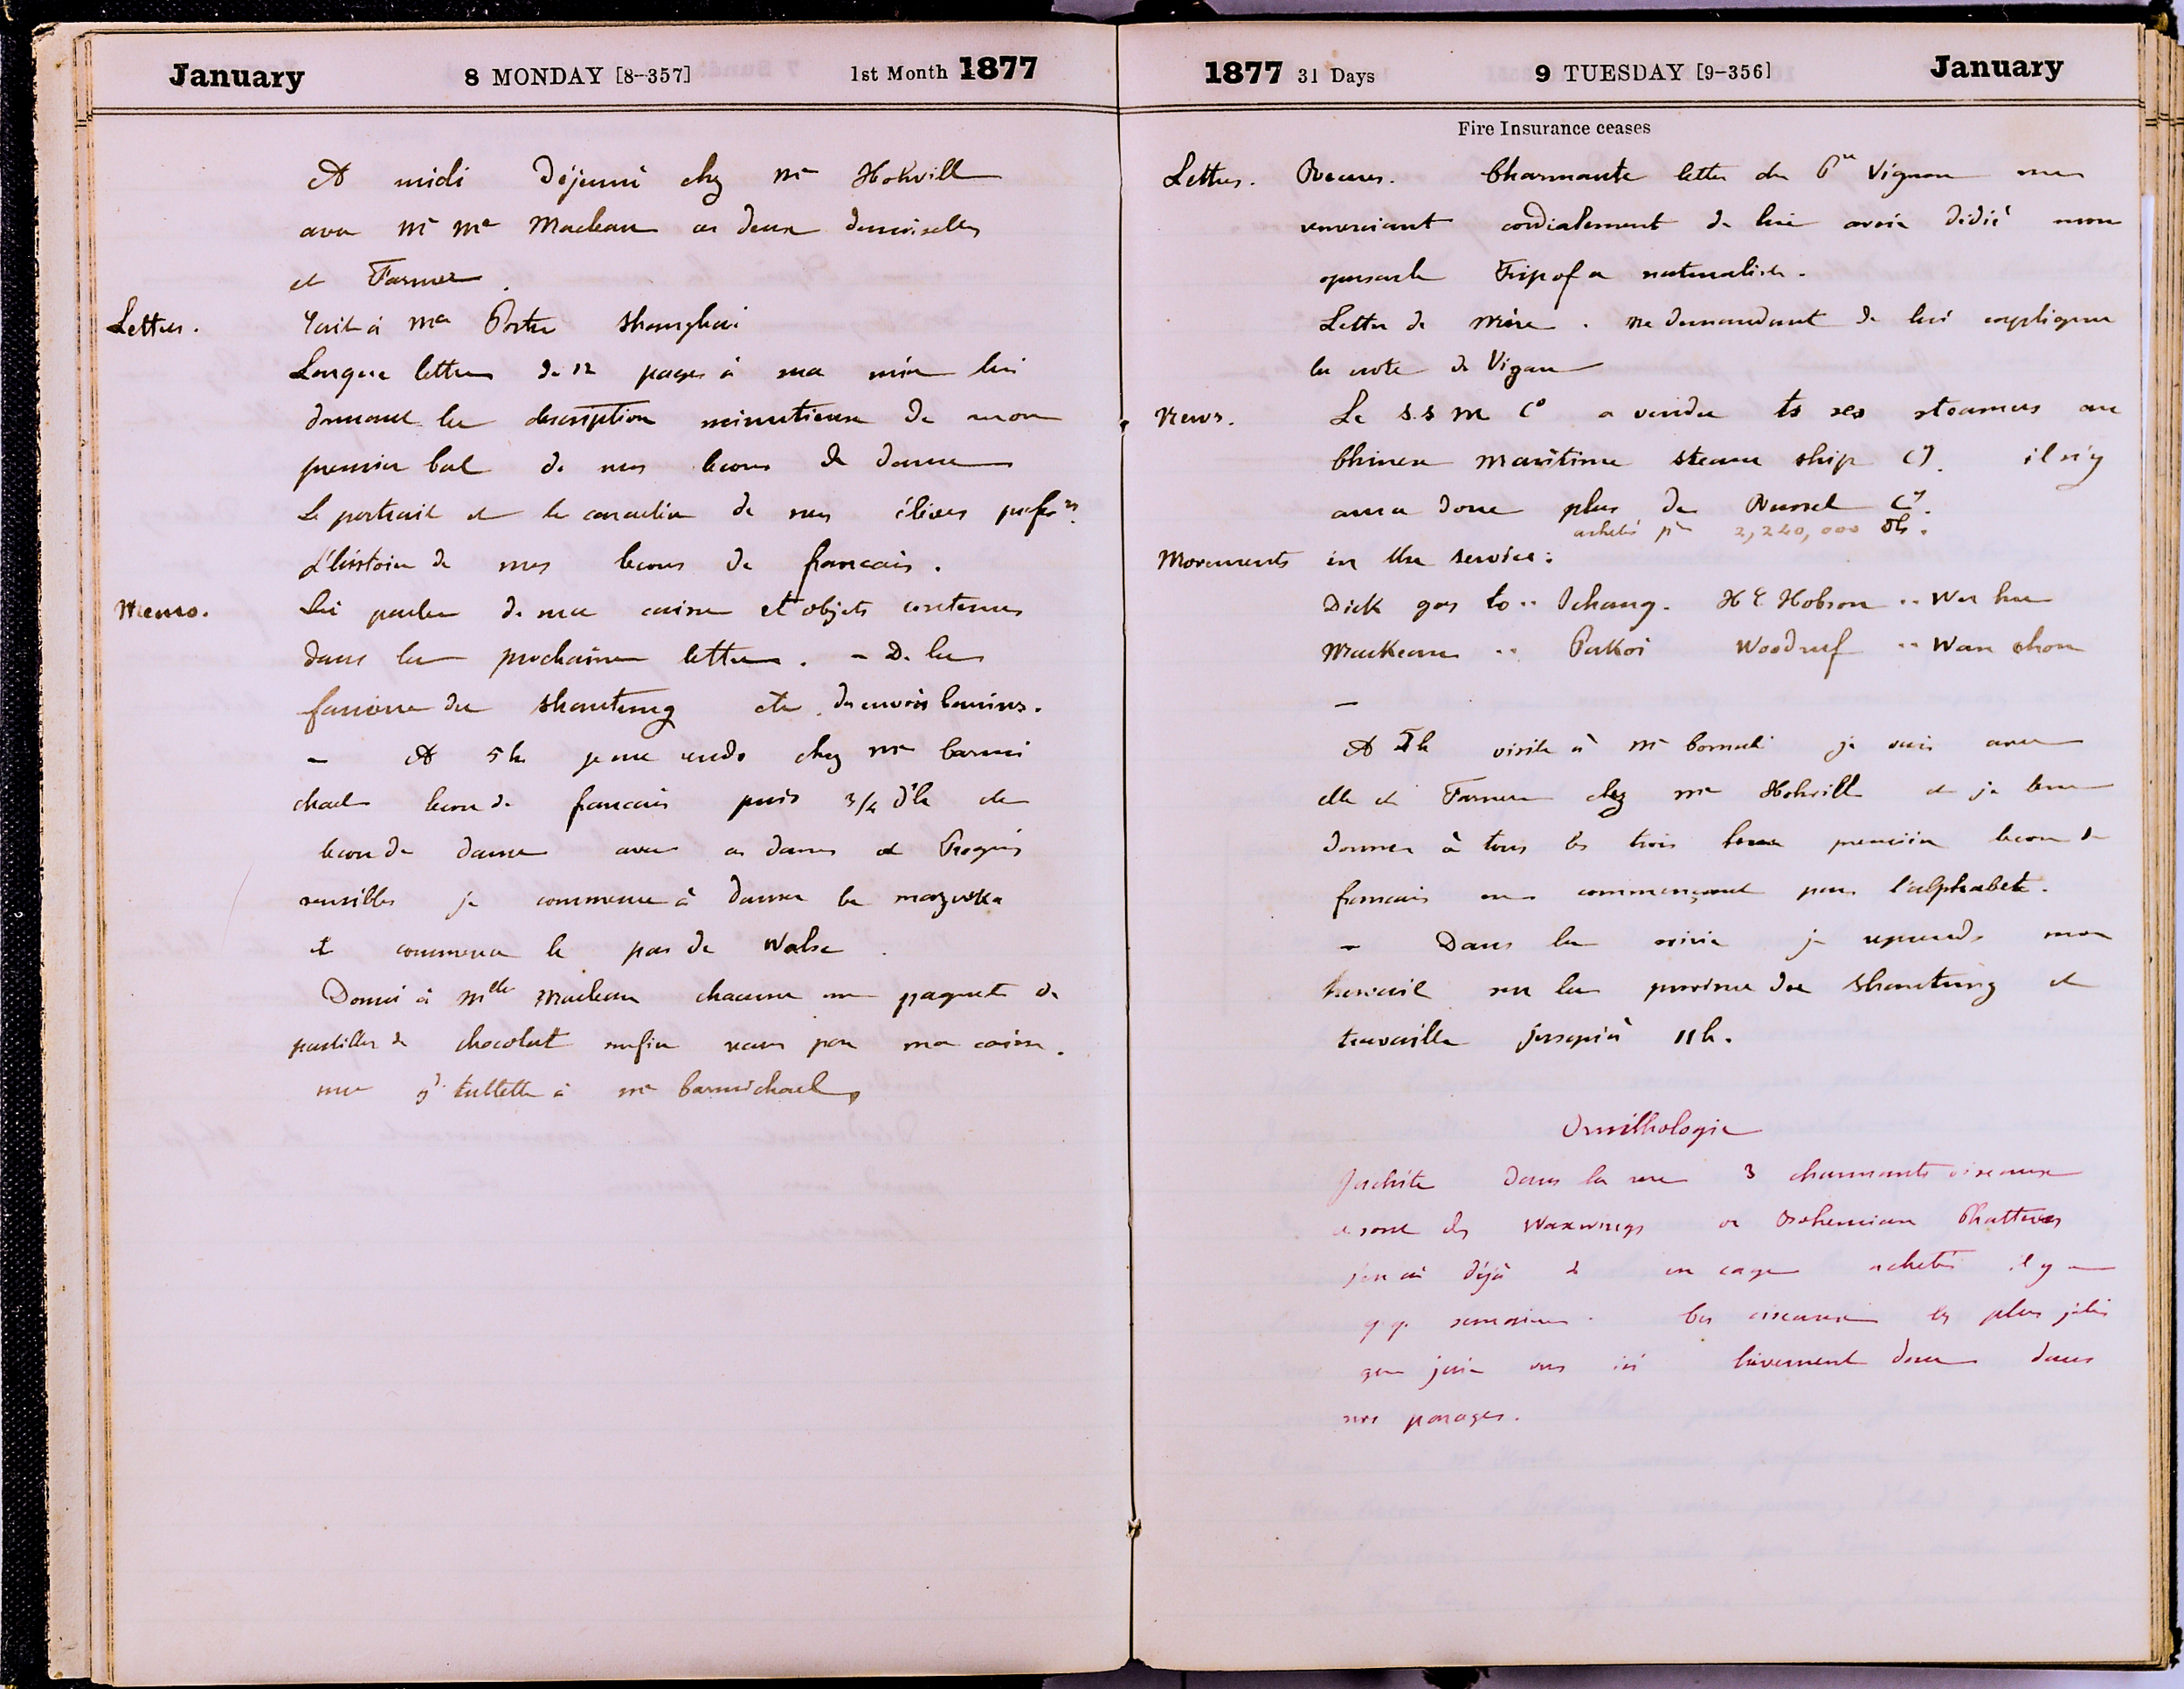 January 8 MONDAY [8-357] 1st Month 1877
A midi Déjeuné chez Mr Hohvill
avec Mr Me Maclean ces deux demoiselles
et Farmer.
Lettres. Écrit à Mr Porter Shanghai
Longue lettre de 12 pages à ma mère lui
donnant la description minutieuse de mon
premier bal de mes lecons de danse
Le portrait et le caractère de mes élèves
L'histoire de mes lecons de francais.
Memo. Lui parler de ma caisse et objets contenus
dans la prochaine lettre. - De la
du Shantung etc
- A 5h je me rends chez Mr Carmi
chael lecon de francais puis 3/4 d'h de
lecon de danse avec ces dames et Progrès
sensibles je commence à danser la mazurka
et commence le pas de Valse.
Donné à Mlle Maclean chacune un paquet de
pastilles de chocolat enfin recus par ma caisse.
une gde tablette à Mr Carmichael
1877 31 Days 9 TUESDAY [9-356] January
Fire Insurance ceases
Lettres. Recues. Charmante lettre du Vignon me
remerciant cordialement de lui avoir dédié mon
opuscule Trip of a naturalist.
Lettre de mère. me demandant de lui expliquer
la note de Vigan
News. La S.S N Co a vendu ts ses steamers au
Chinese Maritime steam ship Cy. il n'y
aura donc plus de Russel Cy.
achetés pr 2,240,000 Tls.
Movements in the service:
Dick goes to .. Ichang. H E Hobson .. Wu hu
Mackean .. Pakoi Woodruf .. Wan chow
-
A h visite à Mr Cornali je vais avec
elle et Farmer chez Mr Hohvill et je leur
donner à tous les trois leur première lecon de
francais en commençant par l'alphabet.
- Dans la soirée je reprends mon
travail sur la province du Shantung et
travaille jusqu'à 11h.
Ornithologie
J'achète dans la rue 3 charmants oiseaux
ce sont des Waxwings or Bohemian Chatterers
j'en ai déjà 2 en cage achetés il y a
qq. semaines. Ces oiseaux les plus jolis
que j'aie vus ici hivernent donc dans
nos parages.